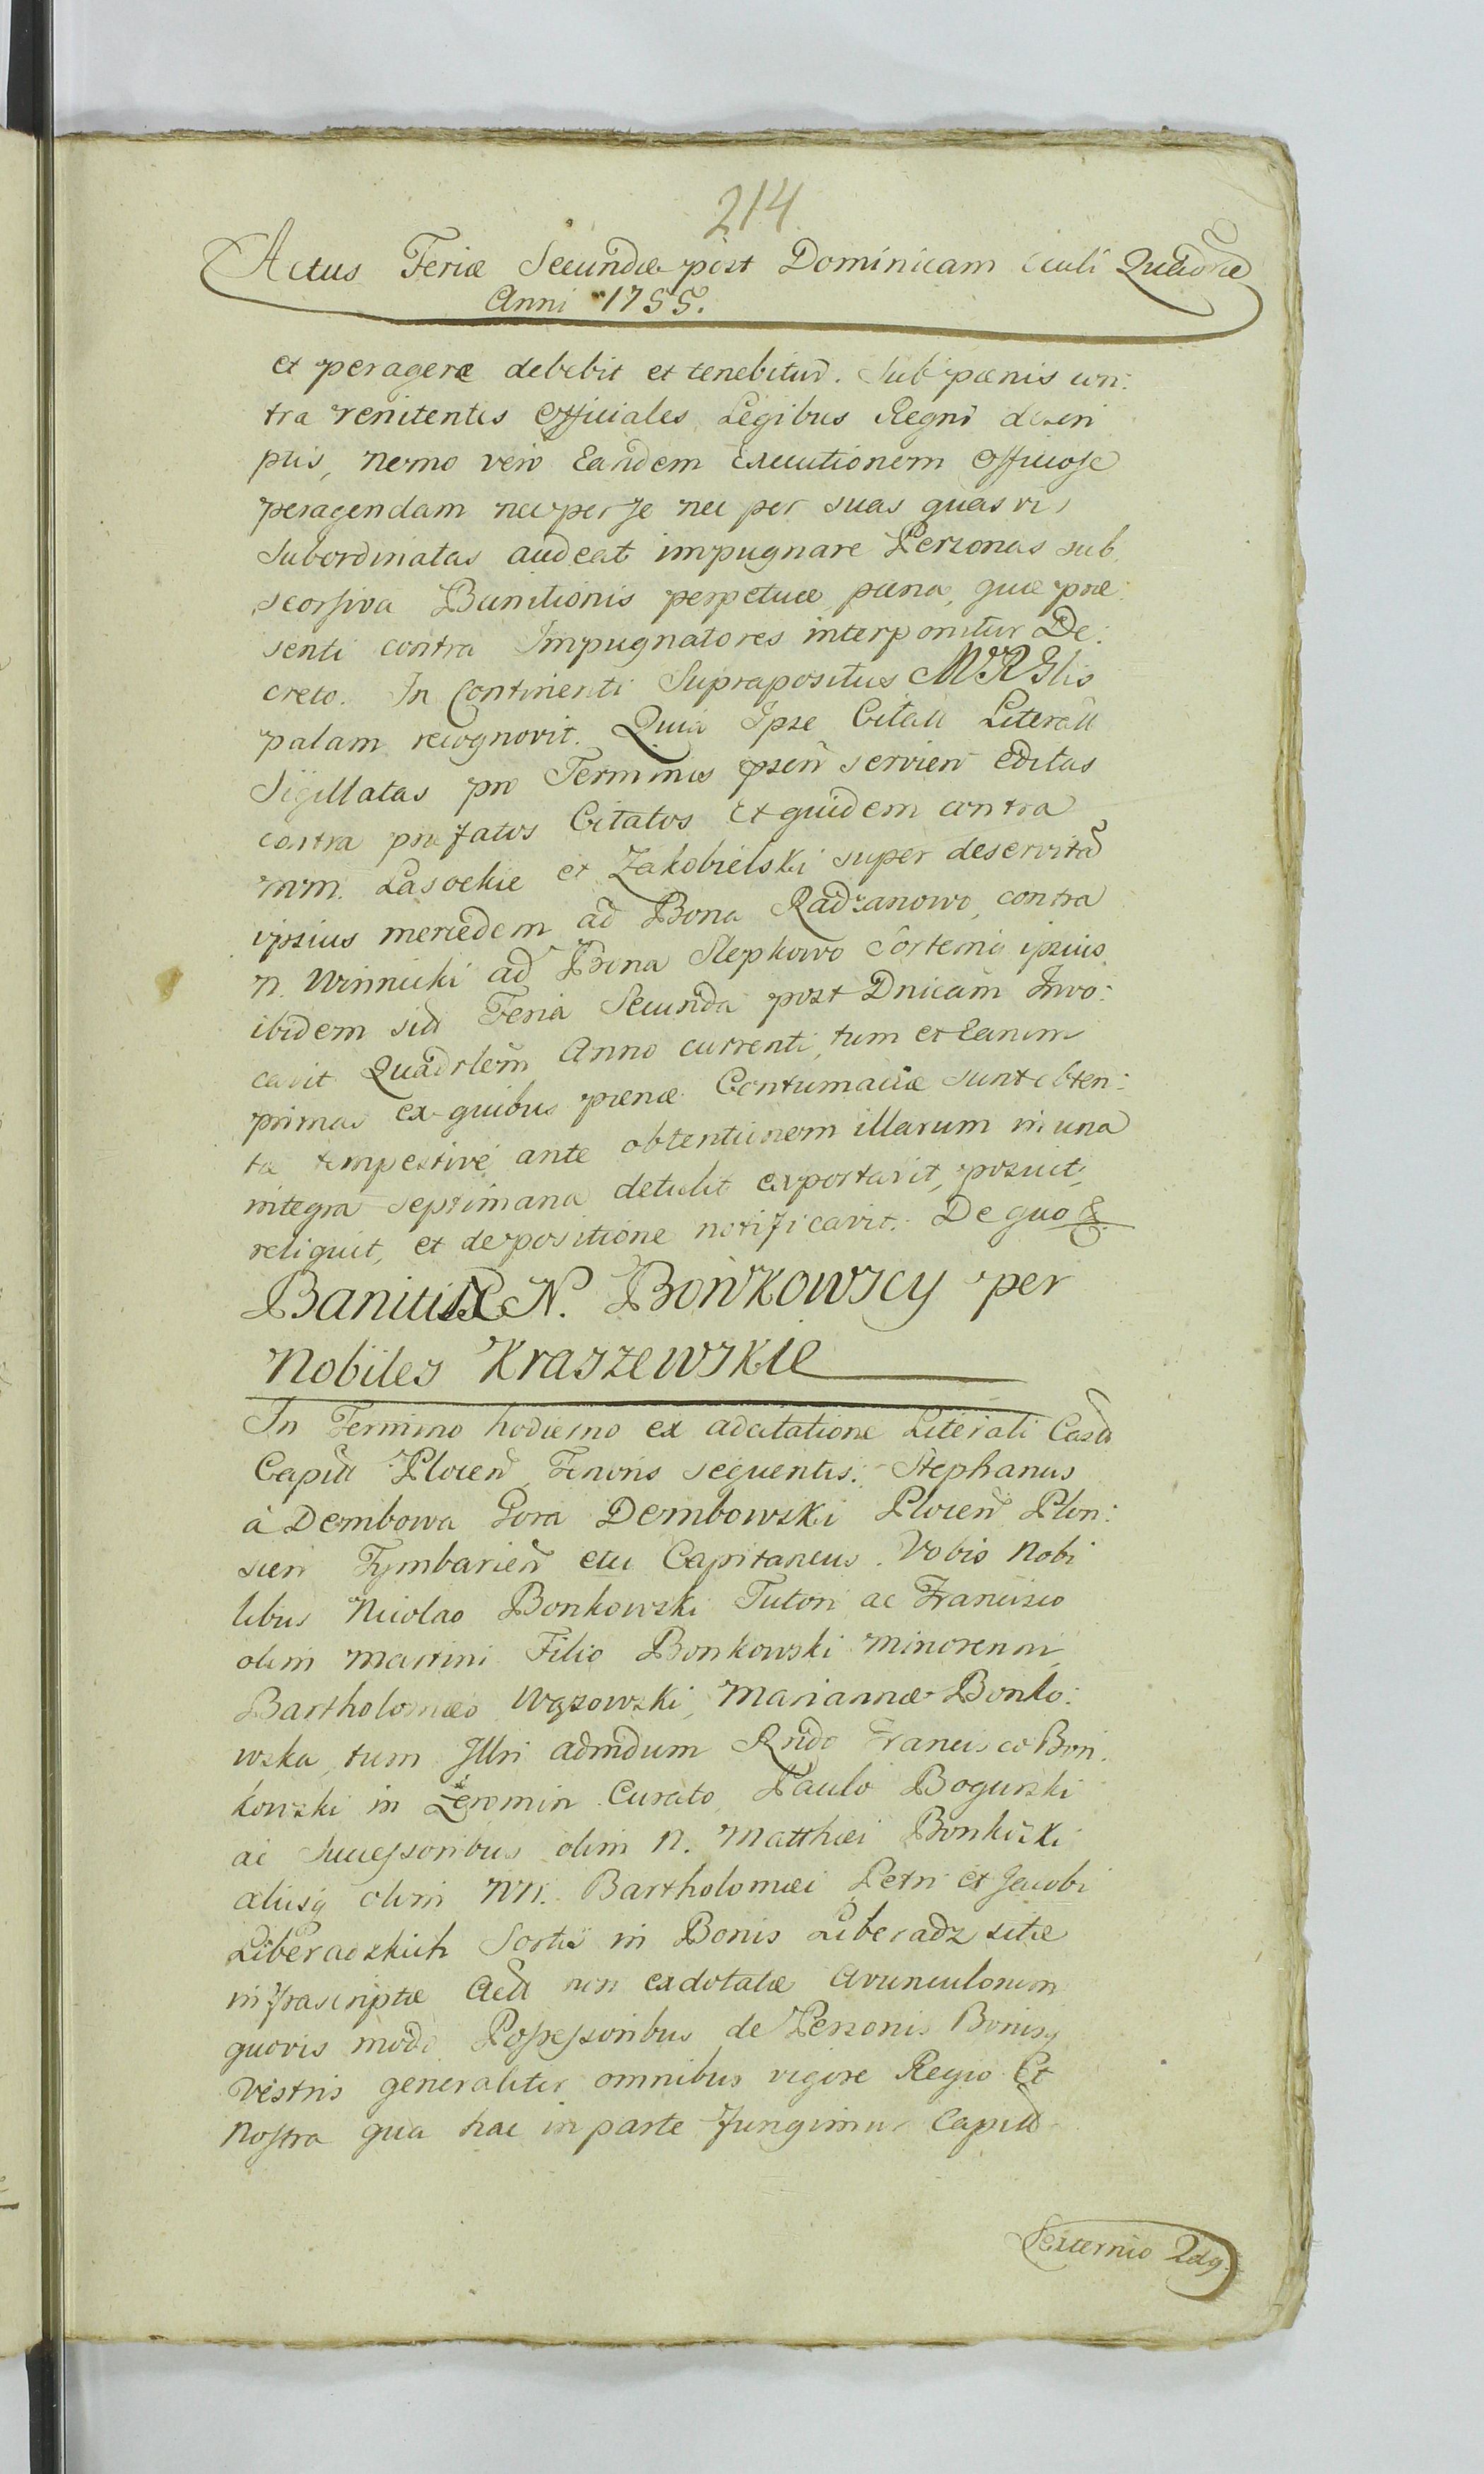 214
Actus Feriæ Secundæ post Dominicam Oculi
Anni 1755.
et peragere debebit et tenebitur. Sub pænis con:
tra renitentes Officiales Legibus Regni descri
ptis, nemo vero Eandem Executionem Officiose
peragendam nec per se nec per suas quasvis
Subordinatas audeat impugnare Personas sub
seorsiva Banitionis perpetuæ pæna, quæ præ
senti contra Impugnatores interponitur De:
creto. In Continenti Suprapositus MRGlis
palam recognovit. Quia Ipse Citatt Literatt
Sigillatas pro Terminis servien editas
contra præfatos Citatos Et quidem contra
mm. Lasockie et Zakobielski super deservitã
ipsius mercedem ad Bona Radzanowo, contra
n. Winnicki ad Bona Slepkowo Sortemq ipsius
ibidem sitt Feria Secunda post Dnicam Invo:
cavit Quadrlem Anno currenti, tum et Earum
primas ex quibus pænæ Contumaciæ sunt obten:
tæ tempestivè ante obtentionem illarum in una
integra septimana detulit exportavit, posuit,
reliquit, et de positione notificavit. De quo &
Banitis N. Bońkowscy per
Nobiles Kraszewskie
In Termino hodierno ex adcitatione Literali Castr
Capitt Plocen Tenoris sequentis. Stephanus
à Dembowa Gora Dembowski Plocen Plon:
scen Tymbarien etc Capitaneus. Vobis Nobi
libus Nicolao Bonkowski Tutori ac Francisco
olim Martini Filio Bonkowski minorenni,
Bartholomæo Wąsowski, Mariannæ Bonko:
wska, tum Illri admdum Rndo Francisco Bon:
kowski in Zeromin Curato, Paulo Bogurski
ac Successoribus olim N. Matthæi Bonkoski
aliisq olim NN. Bartholomæi Petri et Jacobi
Liberadzkich Sortis in Bonis Liberadz sitæ
infrascriptæ Actt non exdotatæ Avunculorum
quovis modo Possessoribus de Personis Bonisq
Vestris generaliter omnibus vigore Regio Et
Nostra qua hac in parte fungimur Capitt
Sexternio 2do.